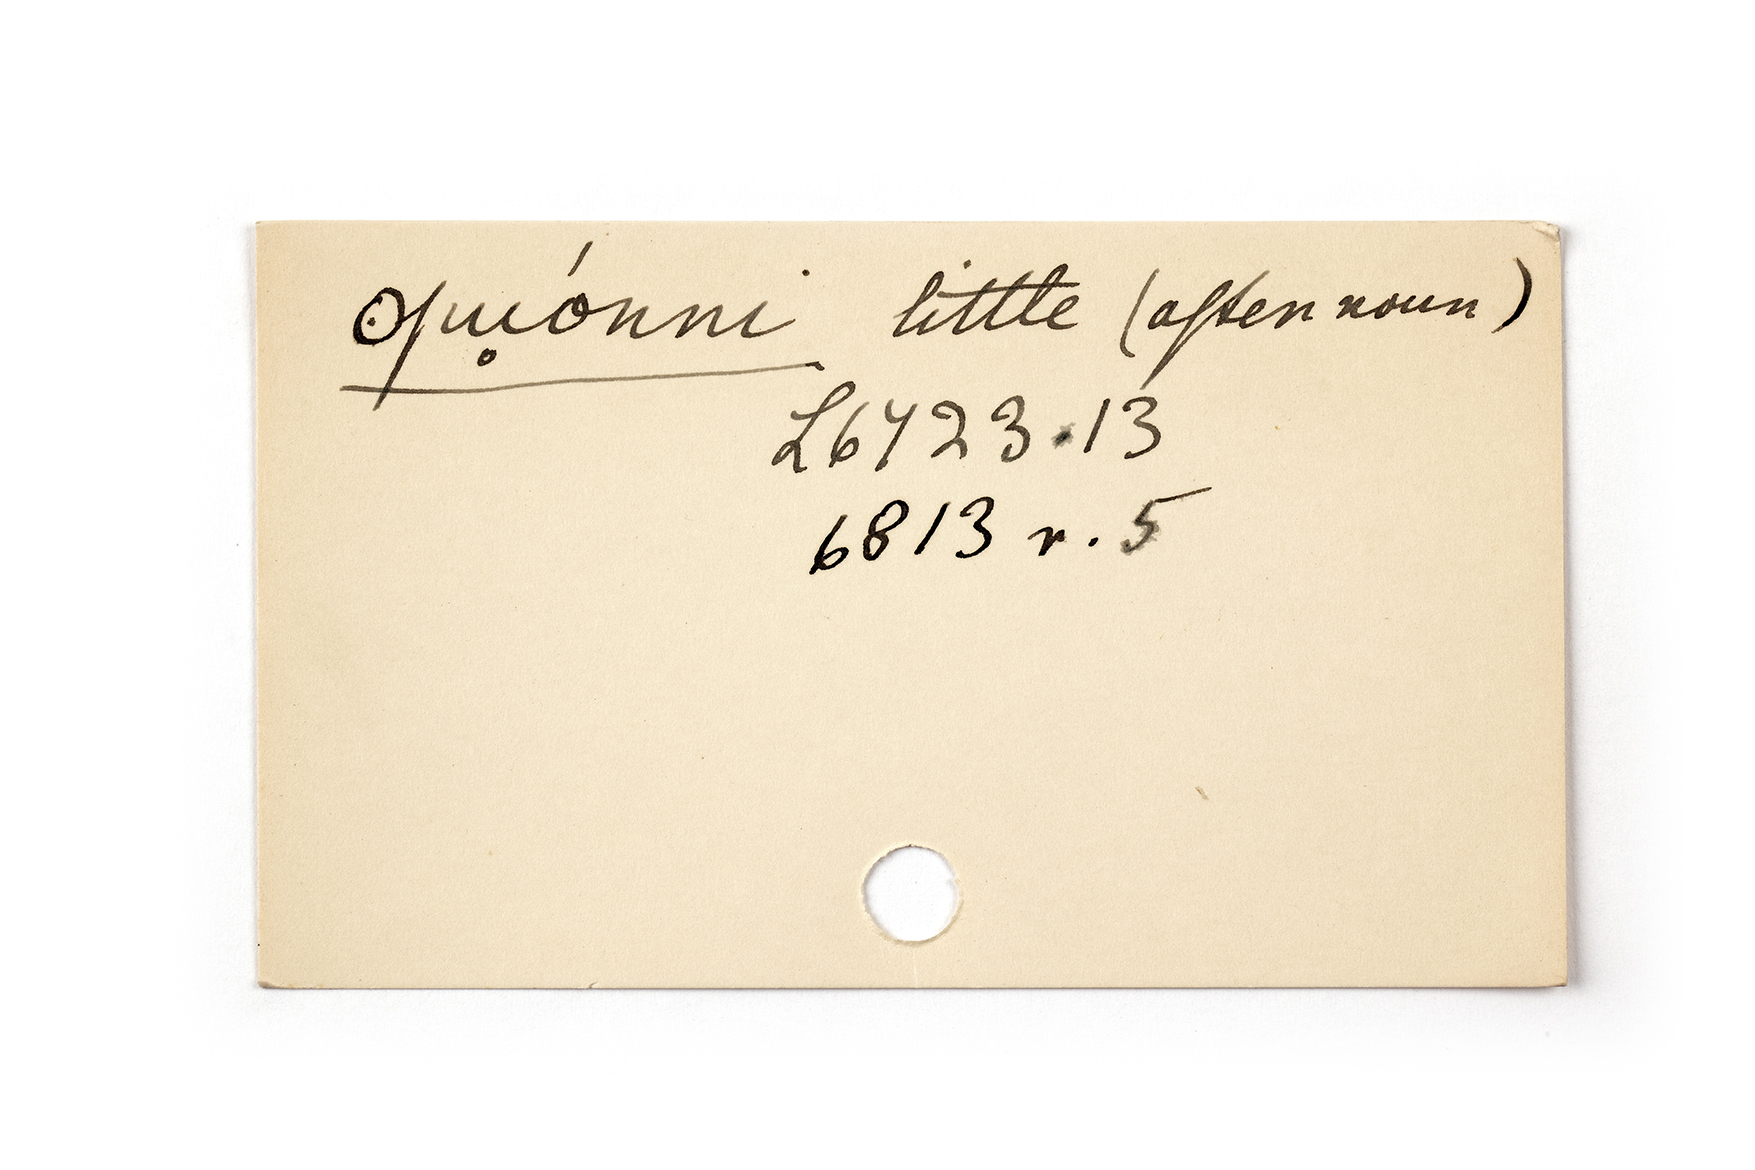 ʘpu̥ónni little (after noun)
L6423.13
6813 r. 5